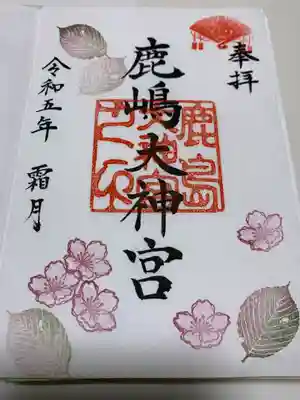 奉拝
鹿嶋大神宮
令和五年 霜月